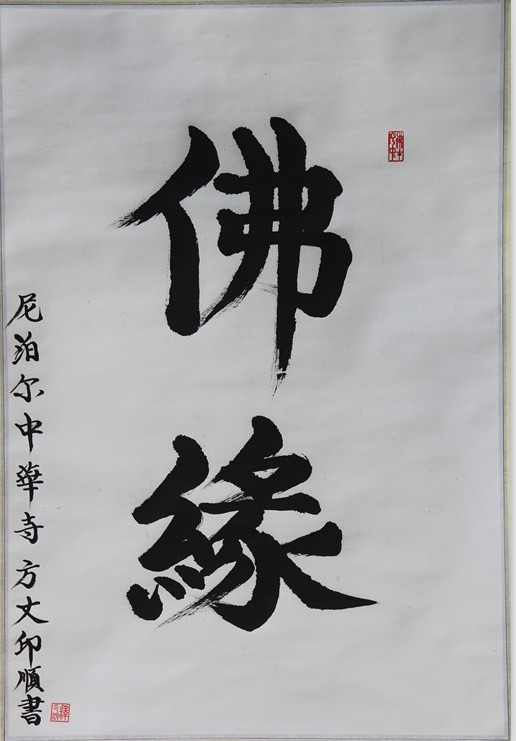 佛緣
尼泊尔中華寺方丈印順書